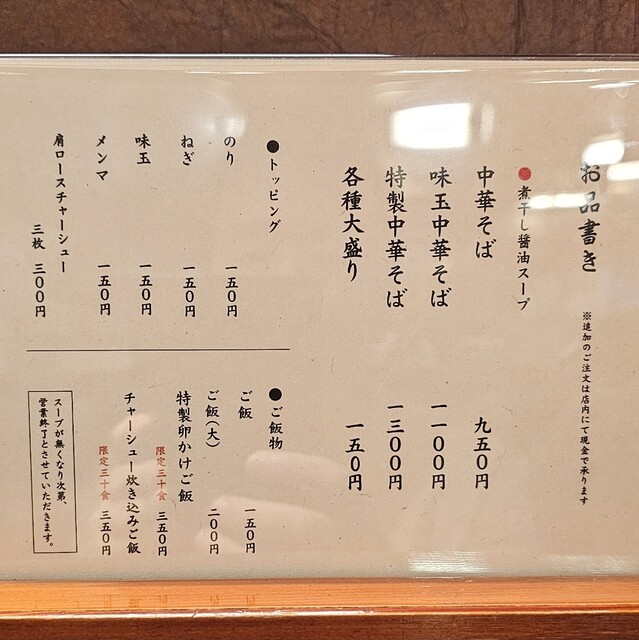 お品書き
※追加のご注文は店内にて現金で承ります
●煮干し醤油スープ
中華そば 九五〇円
味玉中華そば 一一〇〇円
特製中華そば 一三〇〇円
各種大盛り 一五〇円
●トッピング
のり 一五〇円
ねぎ 一五〇円
味玉 一五〇円
メンマ 一五〇円
肩ロースチャーシュー
三枚 三〇〇円
●ご飯物
ご飯 一五〇円
ご飯(大) 二〇〇円
特製卵かけご飯
限定三十食 三五〇円
チャーシュー炊き込みご飯
限定三十食 三五〇円
スープが無くなり次第、
営業終了とさせていただきます。